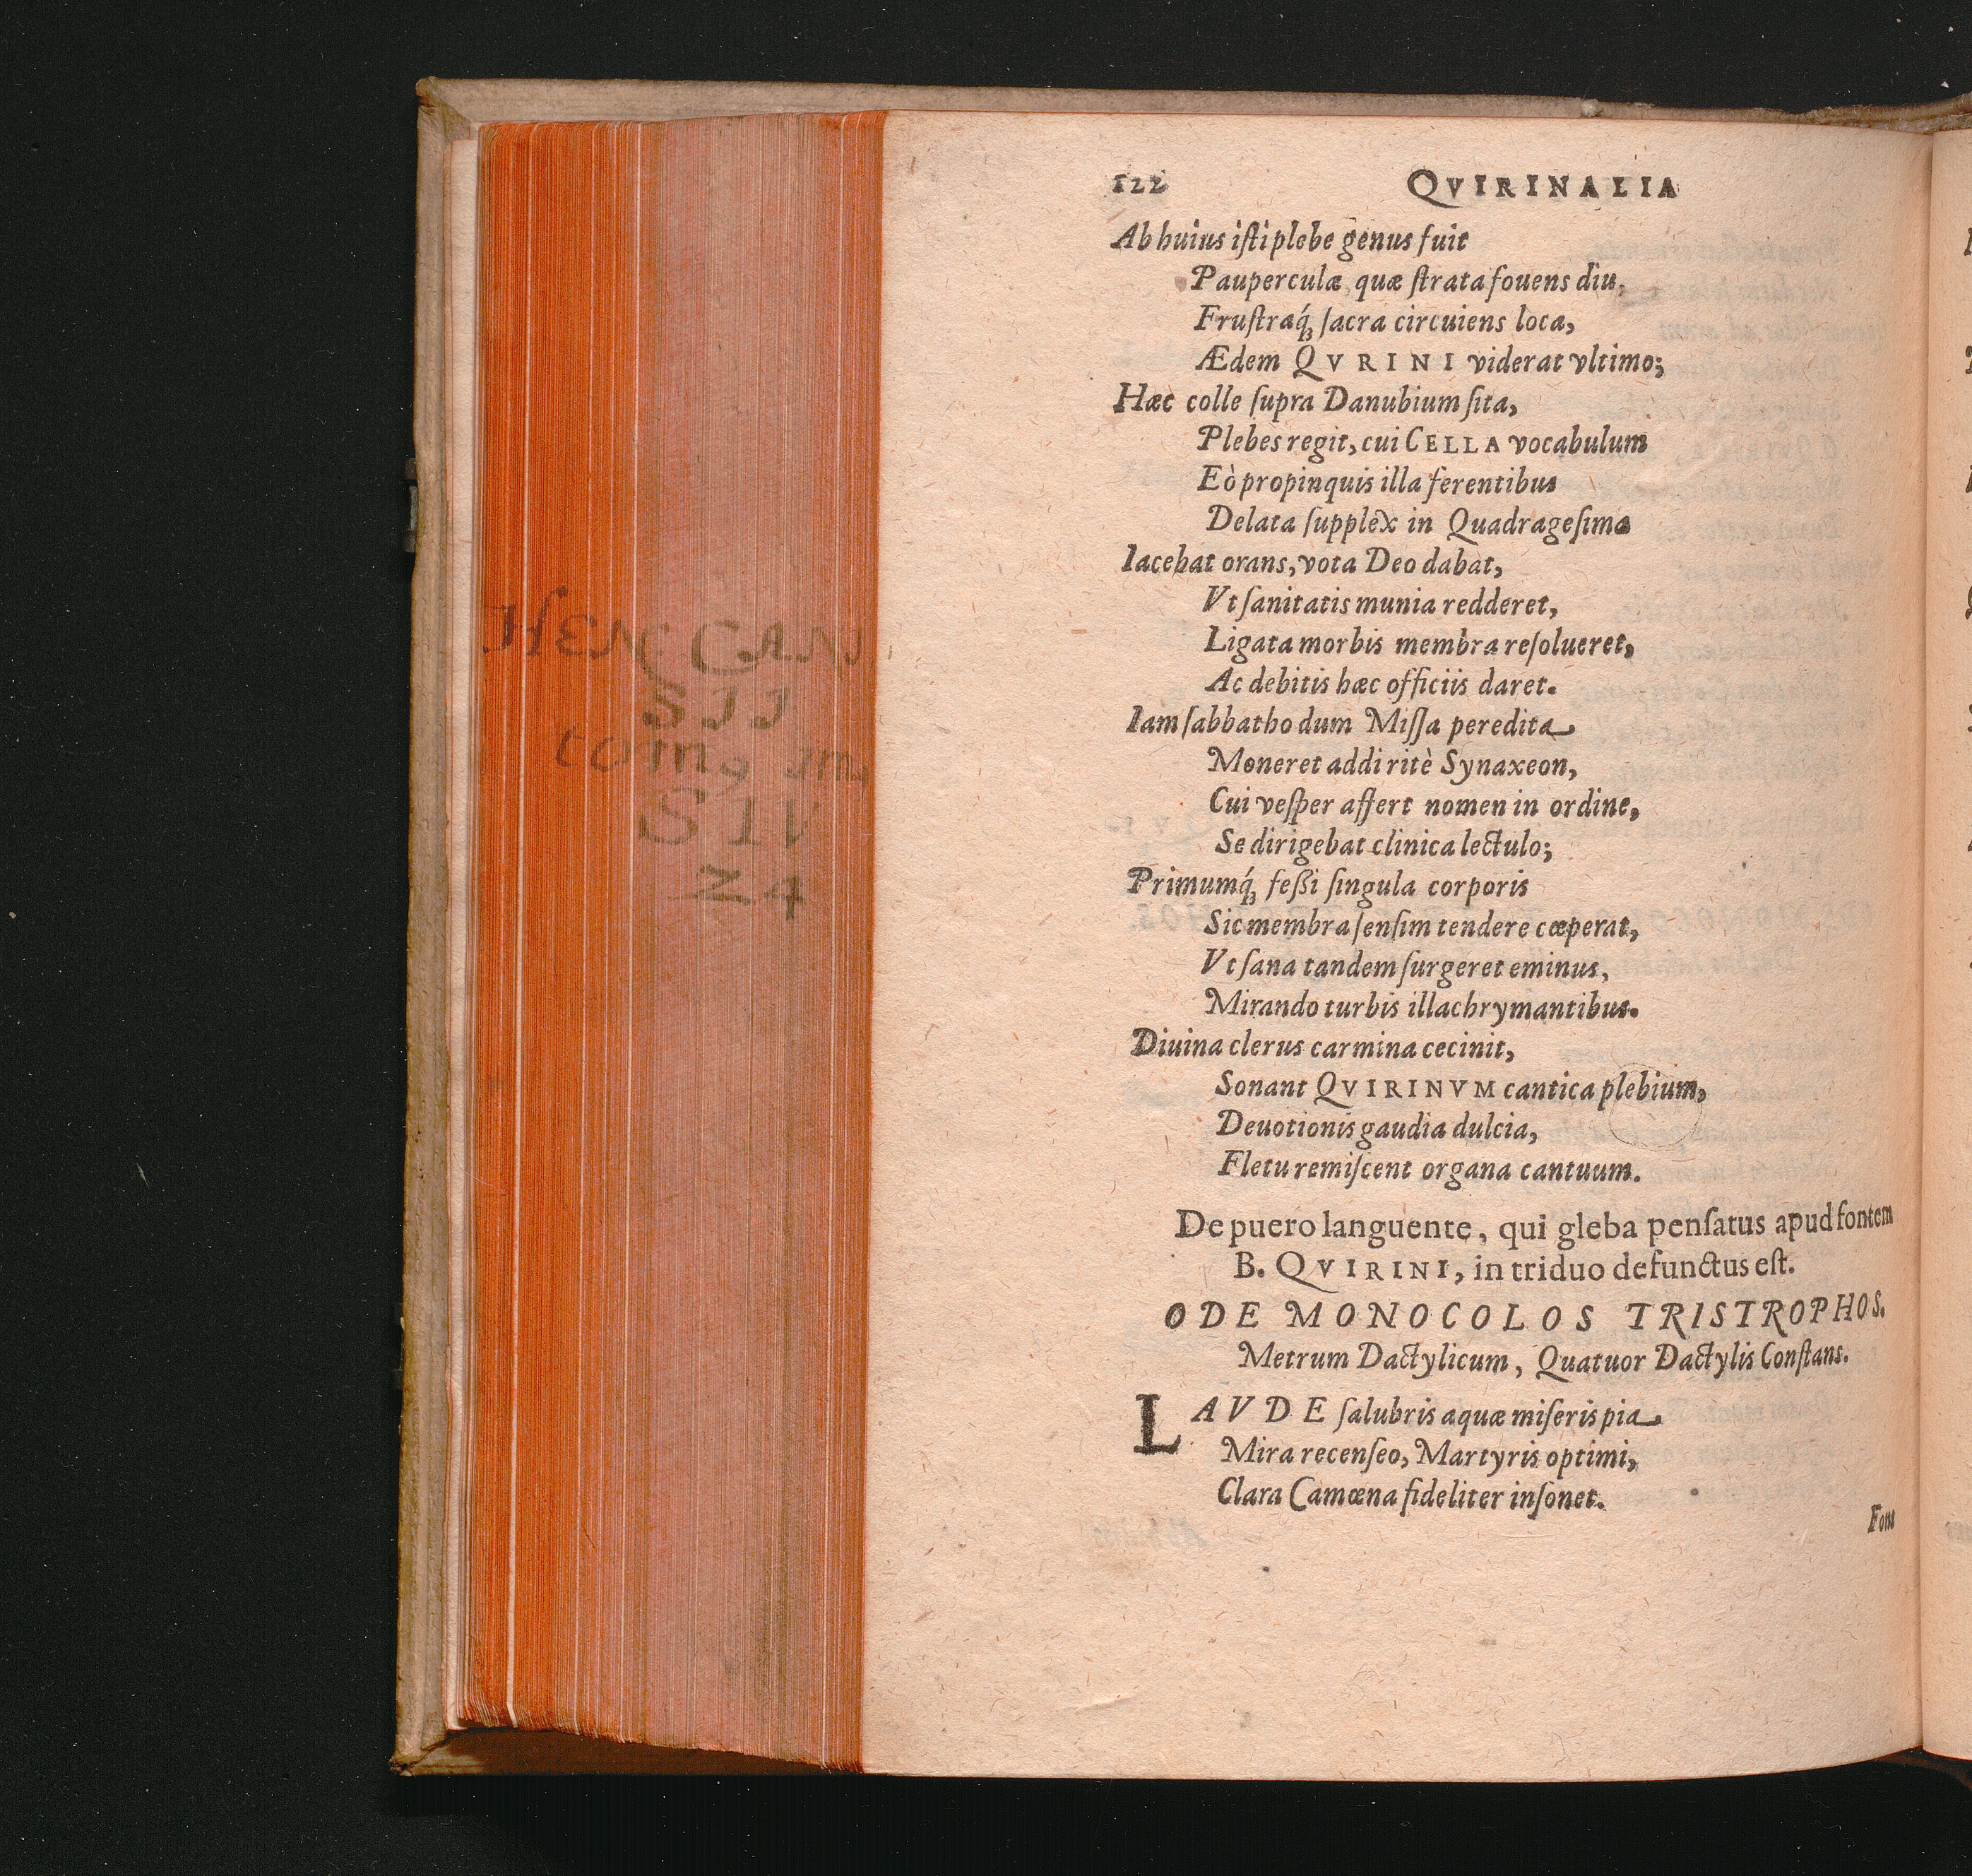 122 QVIRINALIA
Ab huius iſti plebe genus fuit
Pauperculæ, quæ ſtrata fouens diu,
Fruſtraq́; ſacra circuiens loca,
Ædem QVRINI viderat vltimo;
Hæc colle ſupra Danubium ſita,
Plebes regit, cui CELLA vocabulum
Eò propinquis illa ferentibus
Delata ſupplex in Quadrageſima
Iacebat orans, vota Deo dabat,
Vt ſanitatis munia redderet,
Ligata morbis membra reſolueret,
Ac debitis hæc officiis daret.
Iam ſabbatho dum Miſſa peredita
Moneret addi ritè Synaxeon,
Cui veſper affert nomen in ordine,
Se dirigebat clinica lectulo;
Primumq́; feßi ſingula corporis
Sic membra ſenſim tendere cœperat,
Vt ſana tandem ſurgeret eminus,
Mirando turbis illachrymantibus.
Diuina clerus carmina cecinit,
Sonant QVIRINVM cantica plebium,
Deuotionis gaudia dulcia,
Fletu remiſcent organa cantuum.
De puero languente, qui gleba penſatus apud fontem
B. QVIRINI, in triduo defunctus eſt.
ODE MONOCOLOS TRISTROPHOS.
Metrum Dactylicum, Quatuor Dactylis Conſtans.
LAVDE ſalubris aquæ miſeris pia
Mira recenſeo, Martyris optimi,
Clara Camœna fideliter inſonet.
Fons
HEN CAN
SII
tom
SII
24